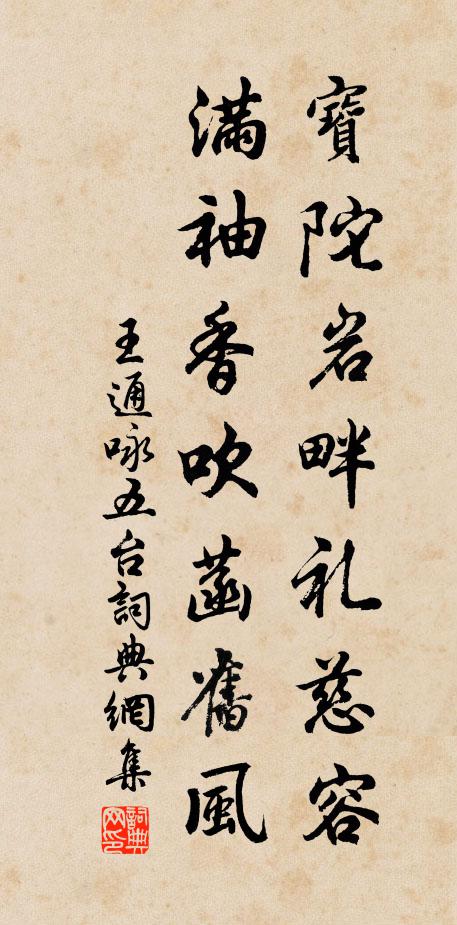 寶陀岩畔礼慈容
滿袖香吹菡舊風
王通咏五台詞典網集
詞典网印